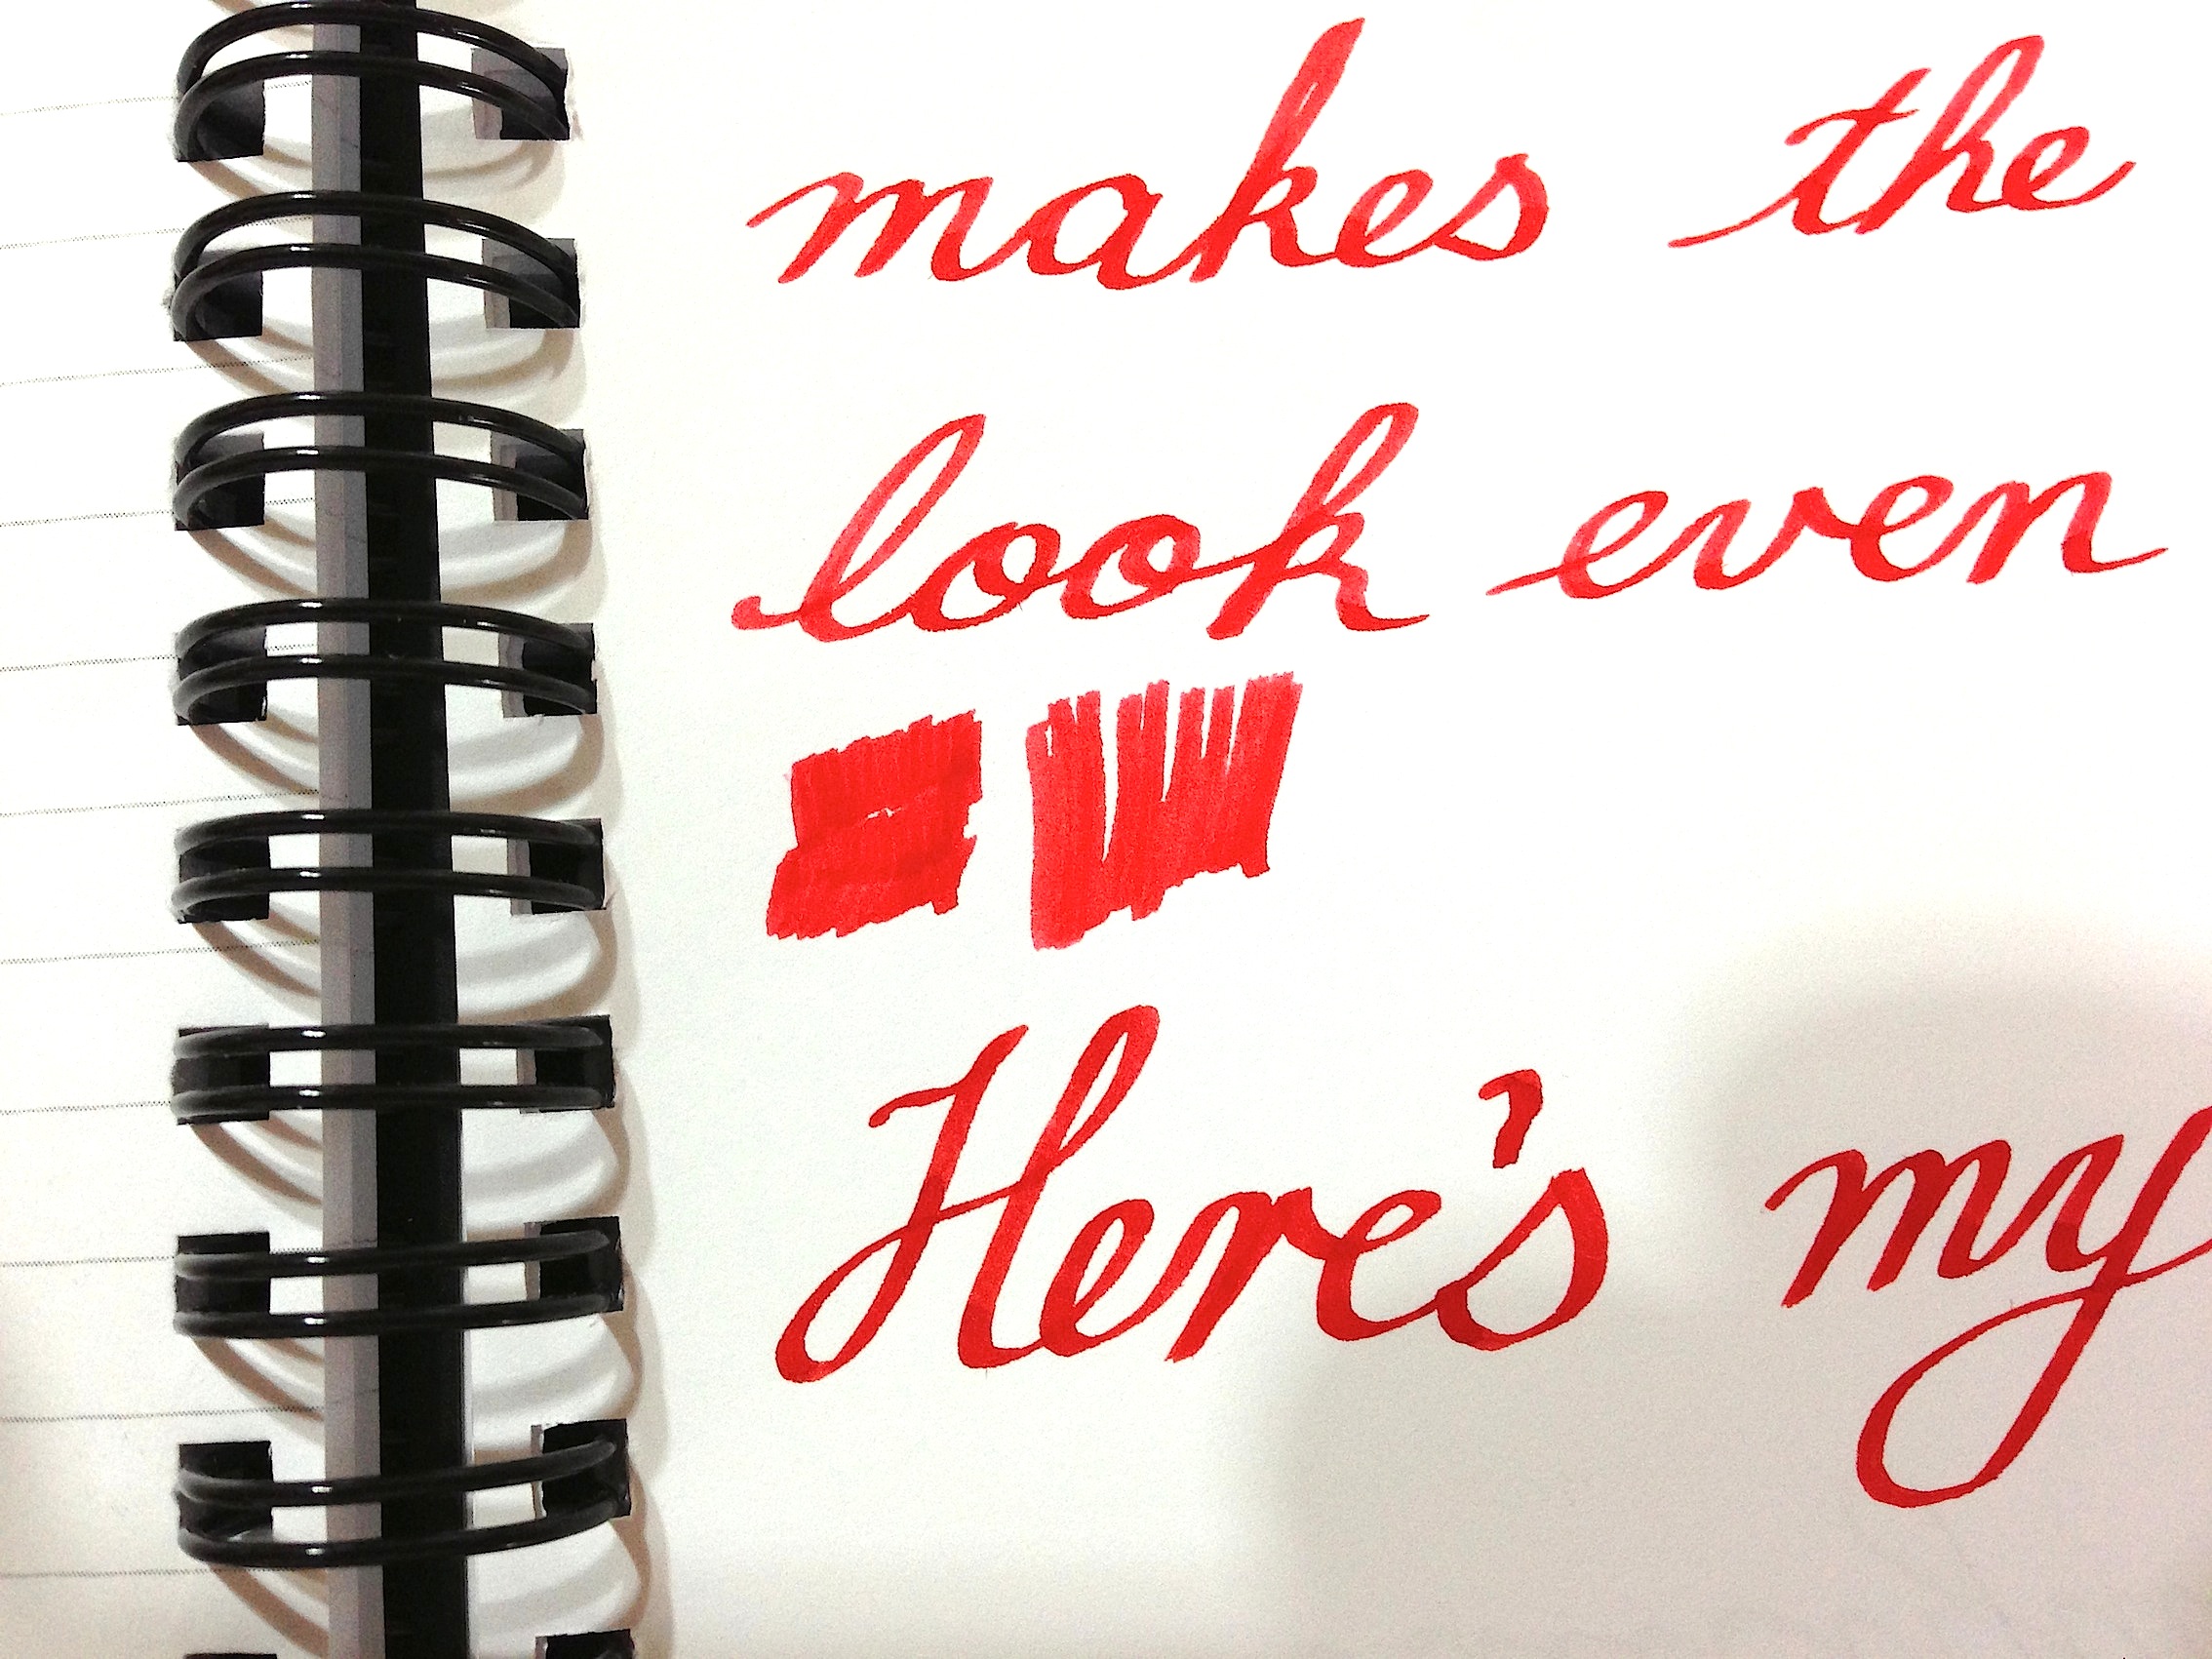 makes the
look even
Here's my